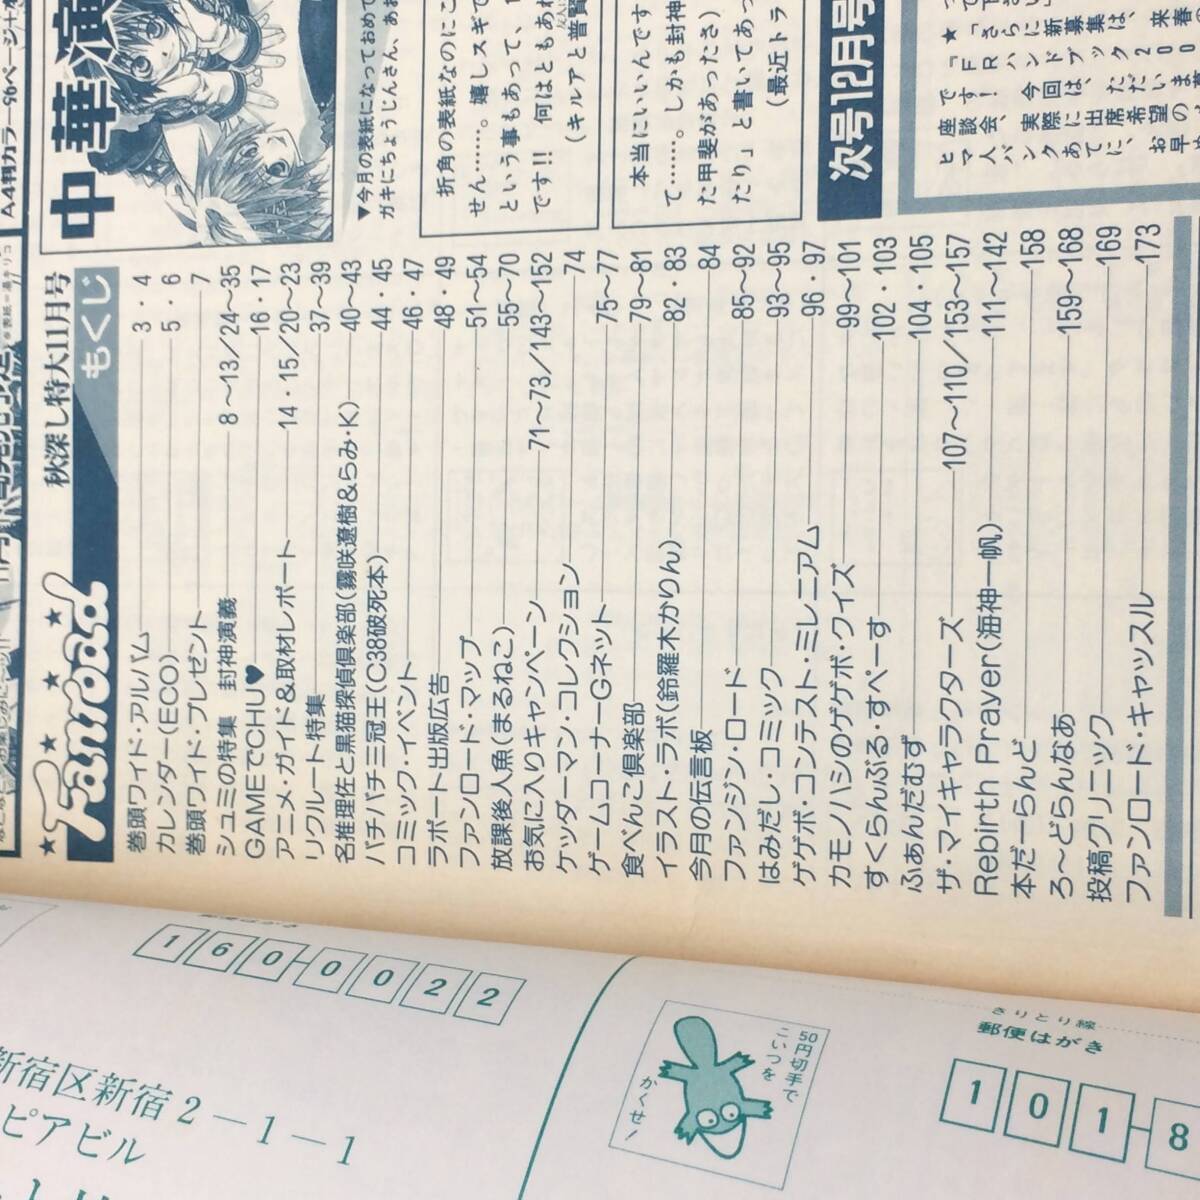 Fanroad
秋深し特大11月号
もくじ
巻頭ワイド・アルバム 3・4
カレンダー(ECO) 5・6
巻頭ワイド・プレゼント 7
シュミの特集 封神演義 8～13/24～35
GAMEでCHU♥ 16・17
アニメ・ガイド&取材レポート 14・15/20～23
リクルート特集 37～39
名推理佐と黒猫探偵倶楽部(霧咲遼樹&らみ・K) 40～43
バチバチ三冠王(C38破死本) 44・45
コミック・イベント 46・47
ラポート出版広告 48・49
ファンロード・マップ 51～54
放課後人魚(まるねこ) 55～70
お気に入りキャンペーン 71～73/143～152
ケッダーマン・コレクション 74
ゲームコーナーGネット 75～77
食べんこ倶楽部 79～81
イラスト・ラボ(鈴羅木かりん) 82・83
今月の伝言板 84
ファンジン・ロード 85～92
はみだし・コミック 93～95
ゲゲボ・コンテスト・ミレニアム 96・97
カモノハシのゲゲボ・クイズ 99～101
すくらんぶる・すぺーす 102・103
ふぁんだむず 104・105
ザ・マイキャラクターズ 107～110/153～157
Rebirth Prayer(海神一帆) 111～142
本だーらんど 158
ろ～どらんなあ 159～168
投稿クリニック 169
ファンロード・キャッスル 173
A4判カラー96ページ
中華演
▼今月の表紙になっておめで
ガキにちょうじんさん、あお
折角の表紙なのにこ
せん……。嬉しスギで
という事もあって、
です!! 何はともあれ
(キルアと普賢
本当にいいんです
て……。しかも封神
た甲斐があったさ)
たり」と書いてあっ
(最近トラ
次号12月号
★「さらに新募集は、来春
「FRハンドブック200
です! 今回は、ただいま
座談会、実際に出席希望の
ヒマ人バンクあてに、お早
郵便はがき
160-0022
新宿区新宿2-1-1
ピアビル
50円切手で
こいつを
かくせ!
きりとり線
郵便はがき
101-8